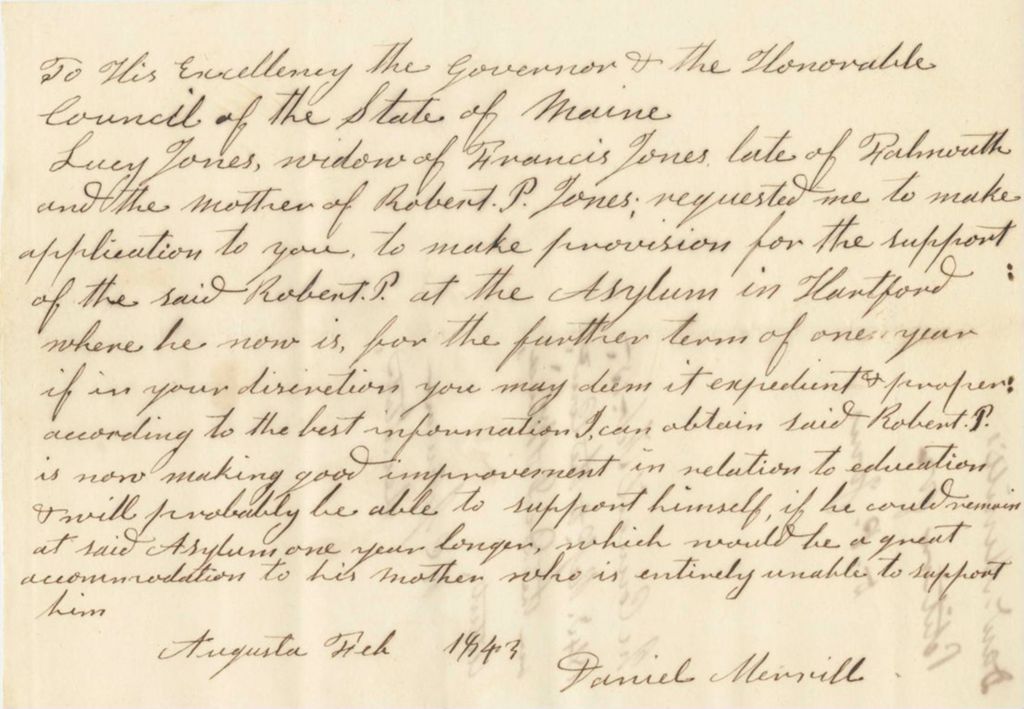 To His Excellency the Governor & the Honorable
Council of the State of Maine
Lucy Jones, widow of Francis Jones, late of Falmouth
and the mother of Robert. P. Jones; requested me to make
application to you, to make provision for the support
of the said Robert. P. at the Asylum in Hartford
where he now is, for the further term of one year
if in your discretion you may deem it expedient & proper:
according to the best information I, can obtain said Robert. P.
is now making good improvement in relation to education
& will probably be able to support himself, if he could remain
at said Asylum one year longer, which would be a great
accommodation to his mother who is entirely unable to support
him
Augusta Feb 1843
Daniel Merrill